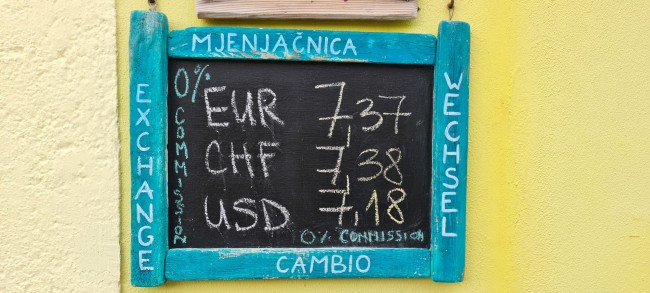 MJENJAČNICA
EXCHANGE
0%
COMMISSION
EUR 7,37
CHF 7,38
USD 7,18
0% COMMISSION
WECHSEL
CAMBIO